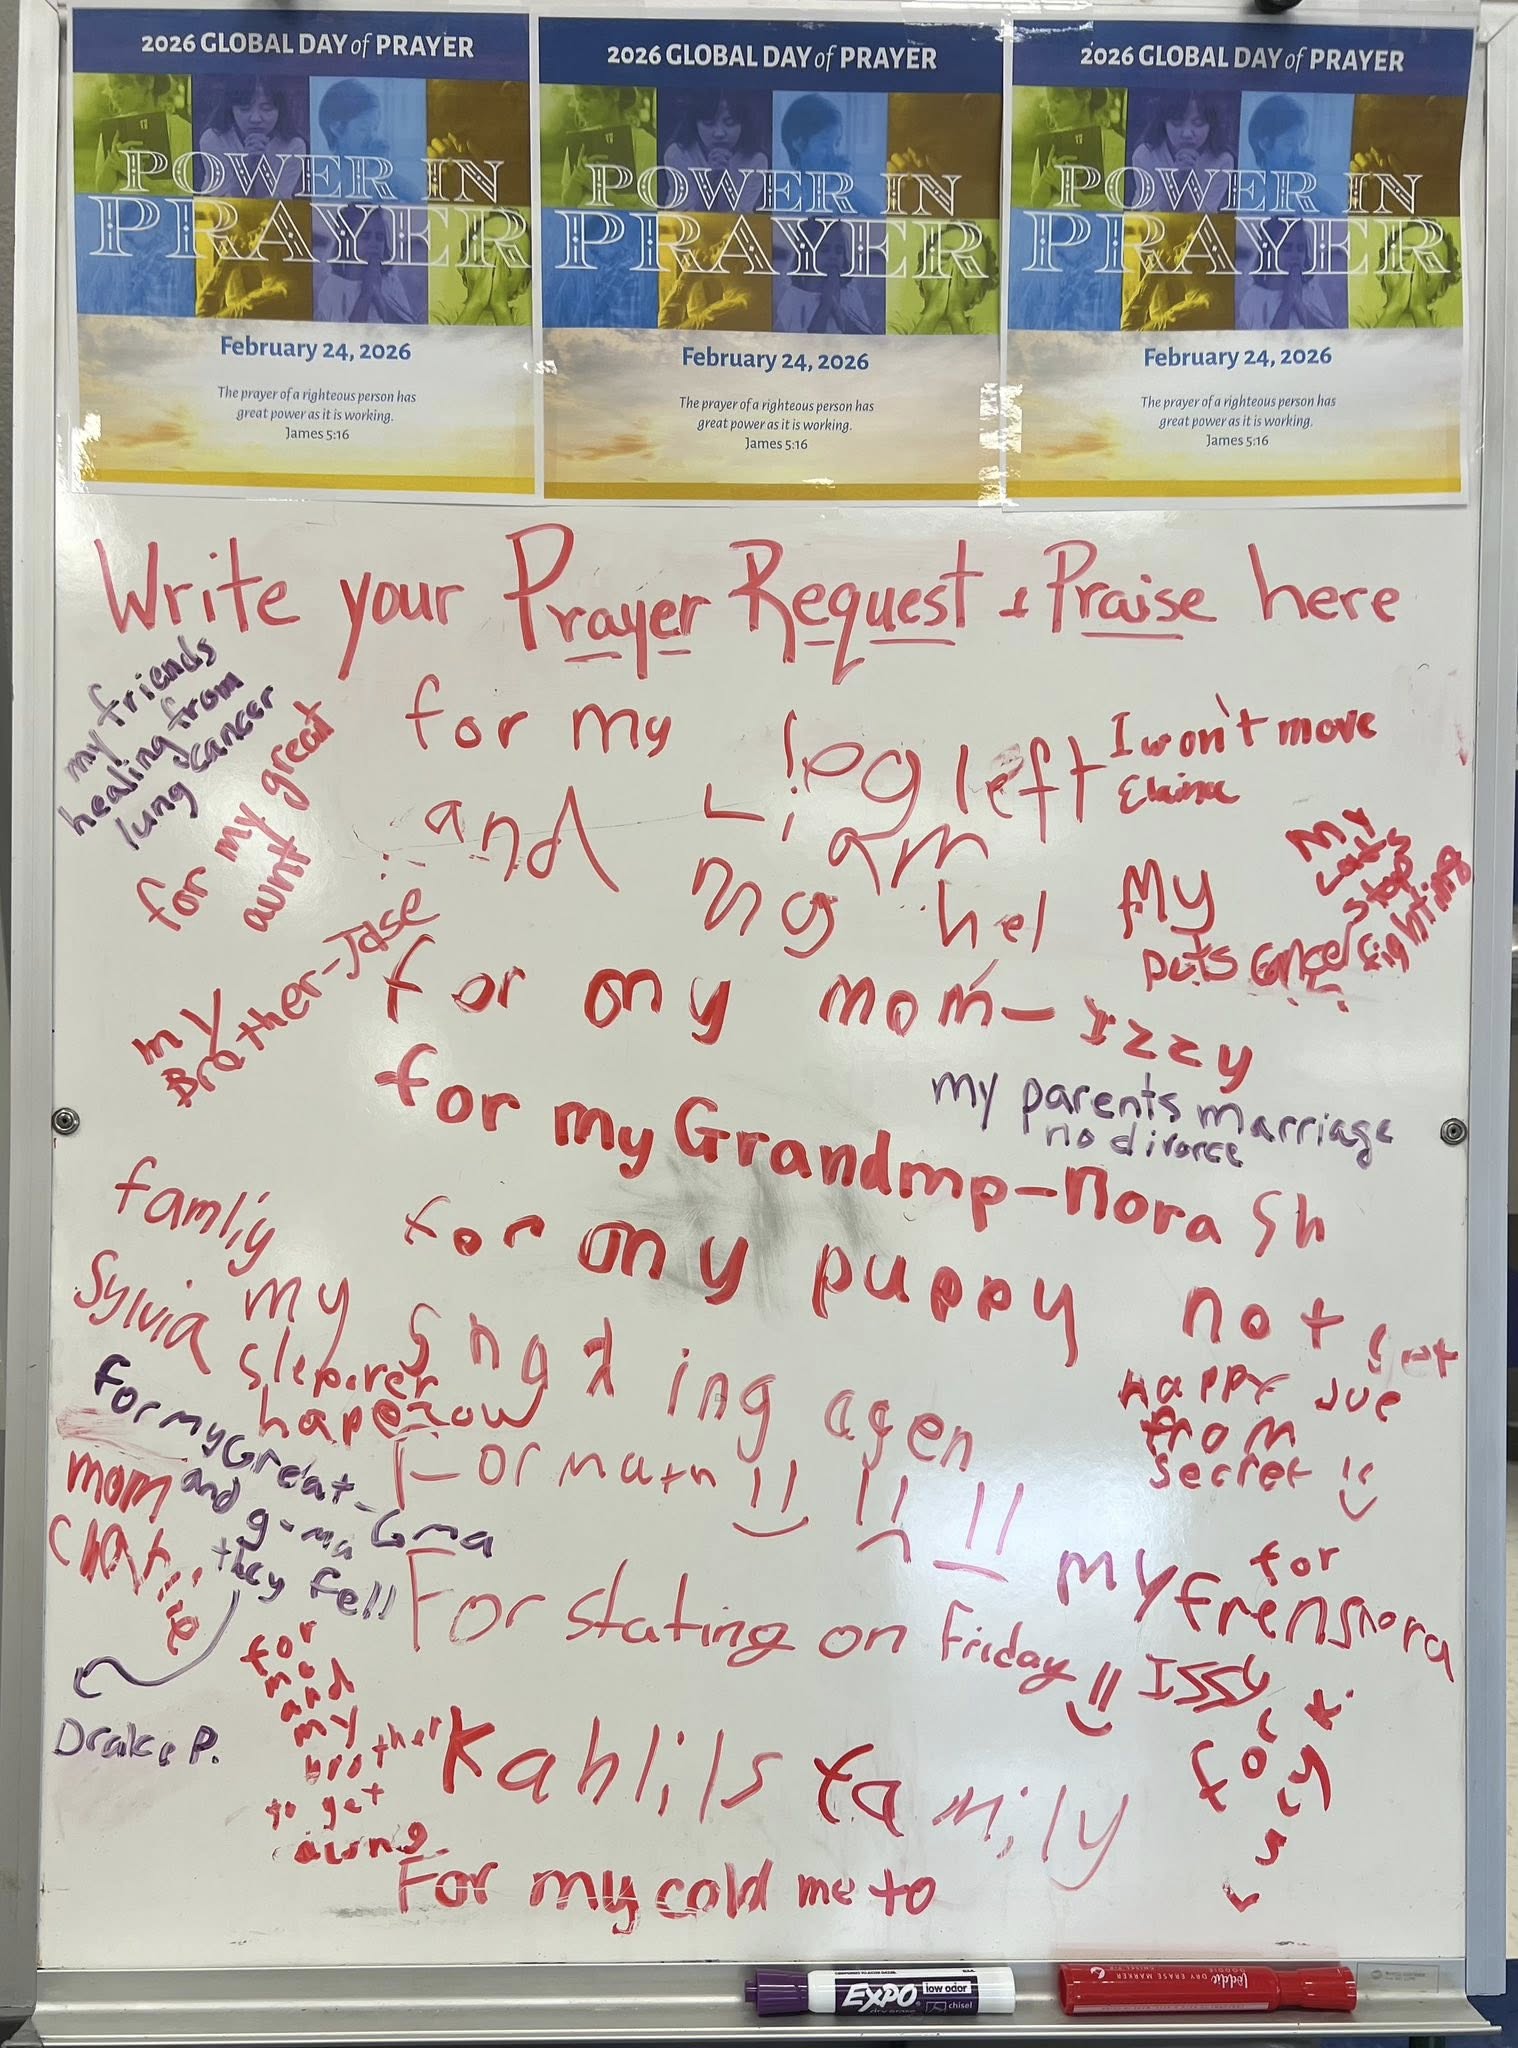 2026 GLOBAL DAY of PRAYER
POWER IN
PRAYER
February 24, 2026
The prayer of a righteous person has
great power as it is working.
James 5:16
2026 GLOBAL DAY of PRAYER
POWER IN
PRAYER
February 24, 2026
The prayer of a righteous person has
great power as it is working.
James 5:16
2026 GLOBAL DAY of PRAYER
POWER IN
PRAYER
February 24, 2026
The prayer of a righteous person has
great power as it is working.
James 5:16
Write your Prayer Request + Praise here
my friends
healing from
lung cancer
for my great
aunt
for my leg left
and
arm
hel
I won't move
Elaina
My
cats
stop
fighting
My
pets cancer
my
Brother-Jase
for my mom-Izzy
for my Grandmp-Nora Sh
my parents marriage
no divorce
for my puppy not
famliy
Sylvia
my
happy
ing agen
Happy
from
secret
for my Great-Gma
and g-ma
they fell
Drake P.
mom
For math
For stating on Friday
for
my fren Shora
Issy
for
me
and
my
brother
to get
Kahlils family
for
For my cold me to
EXPO
low odor
chisel
DRY ERASE MARKER